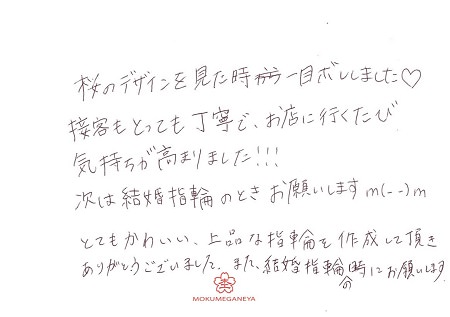 桜のデザインを見た時から一目ボレしました♡
接客もとっても丁寧で、お店に行くたび
気持ちが高まりました!!!
次は結婚指輪のときお願いします m(--)m
とてもかわいい、上品な指輪を作成して頂き
ありがとうございました。また、結婚指輪の時にお願いします
MOKUMEGANEYA